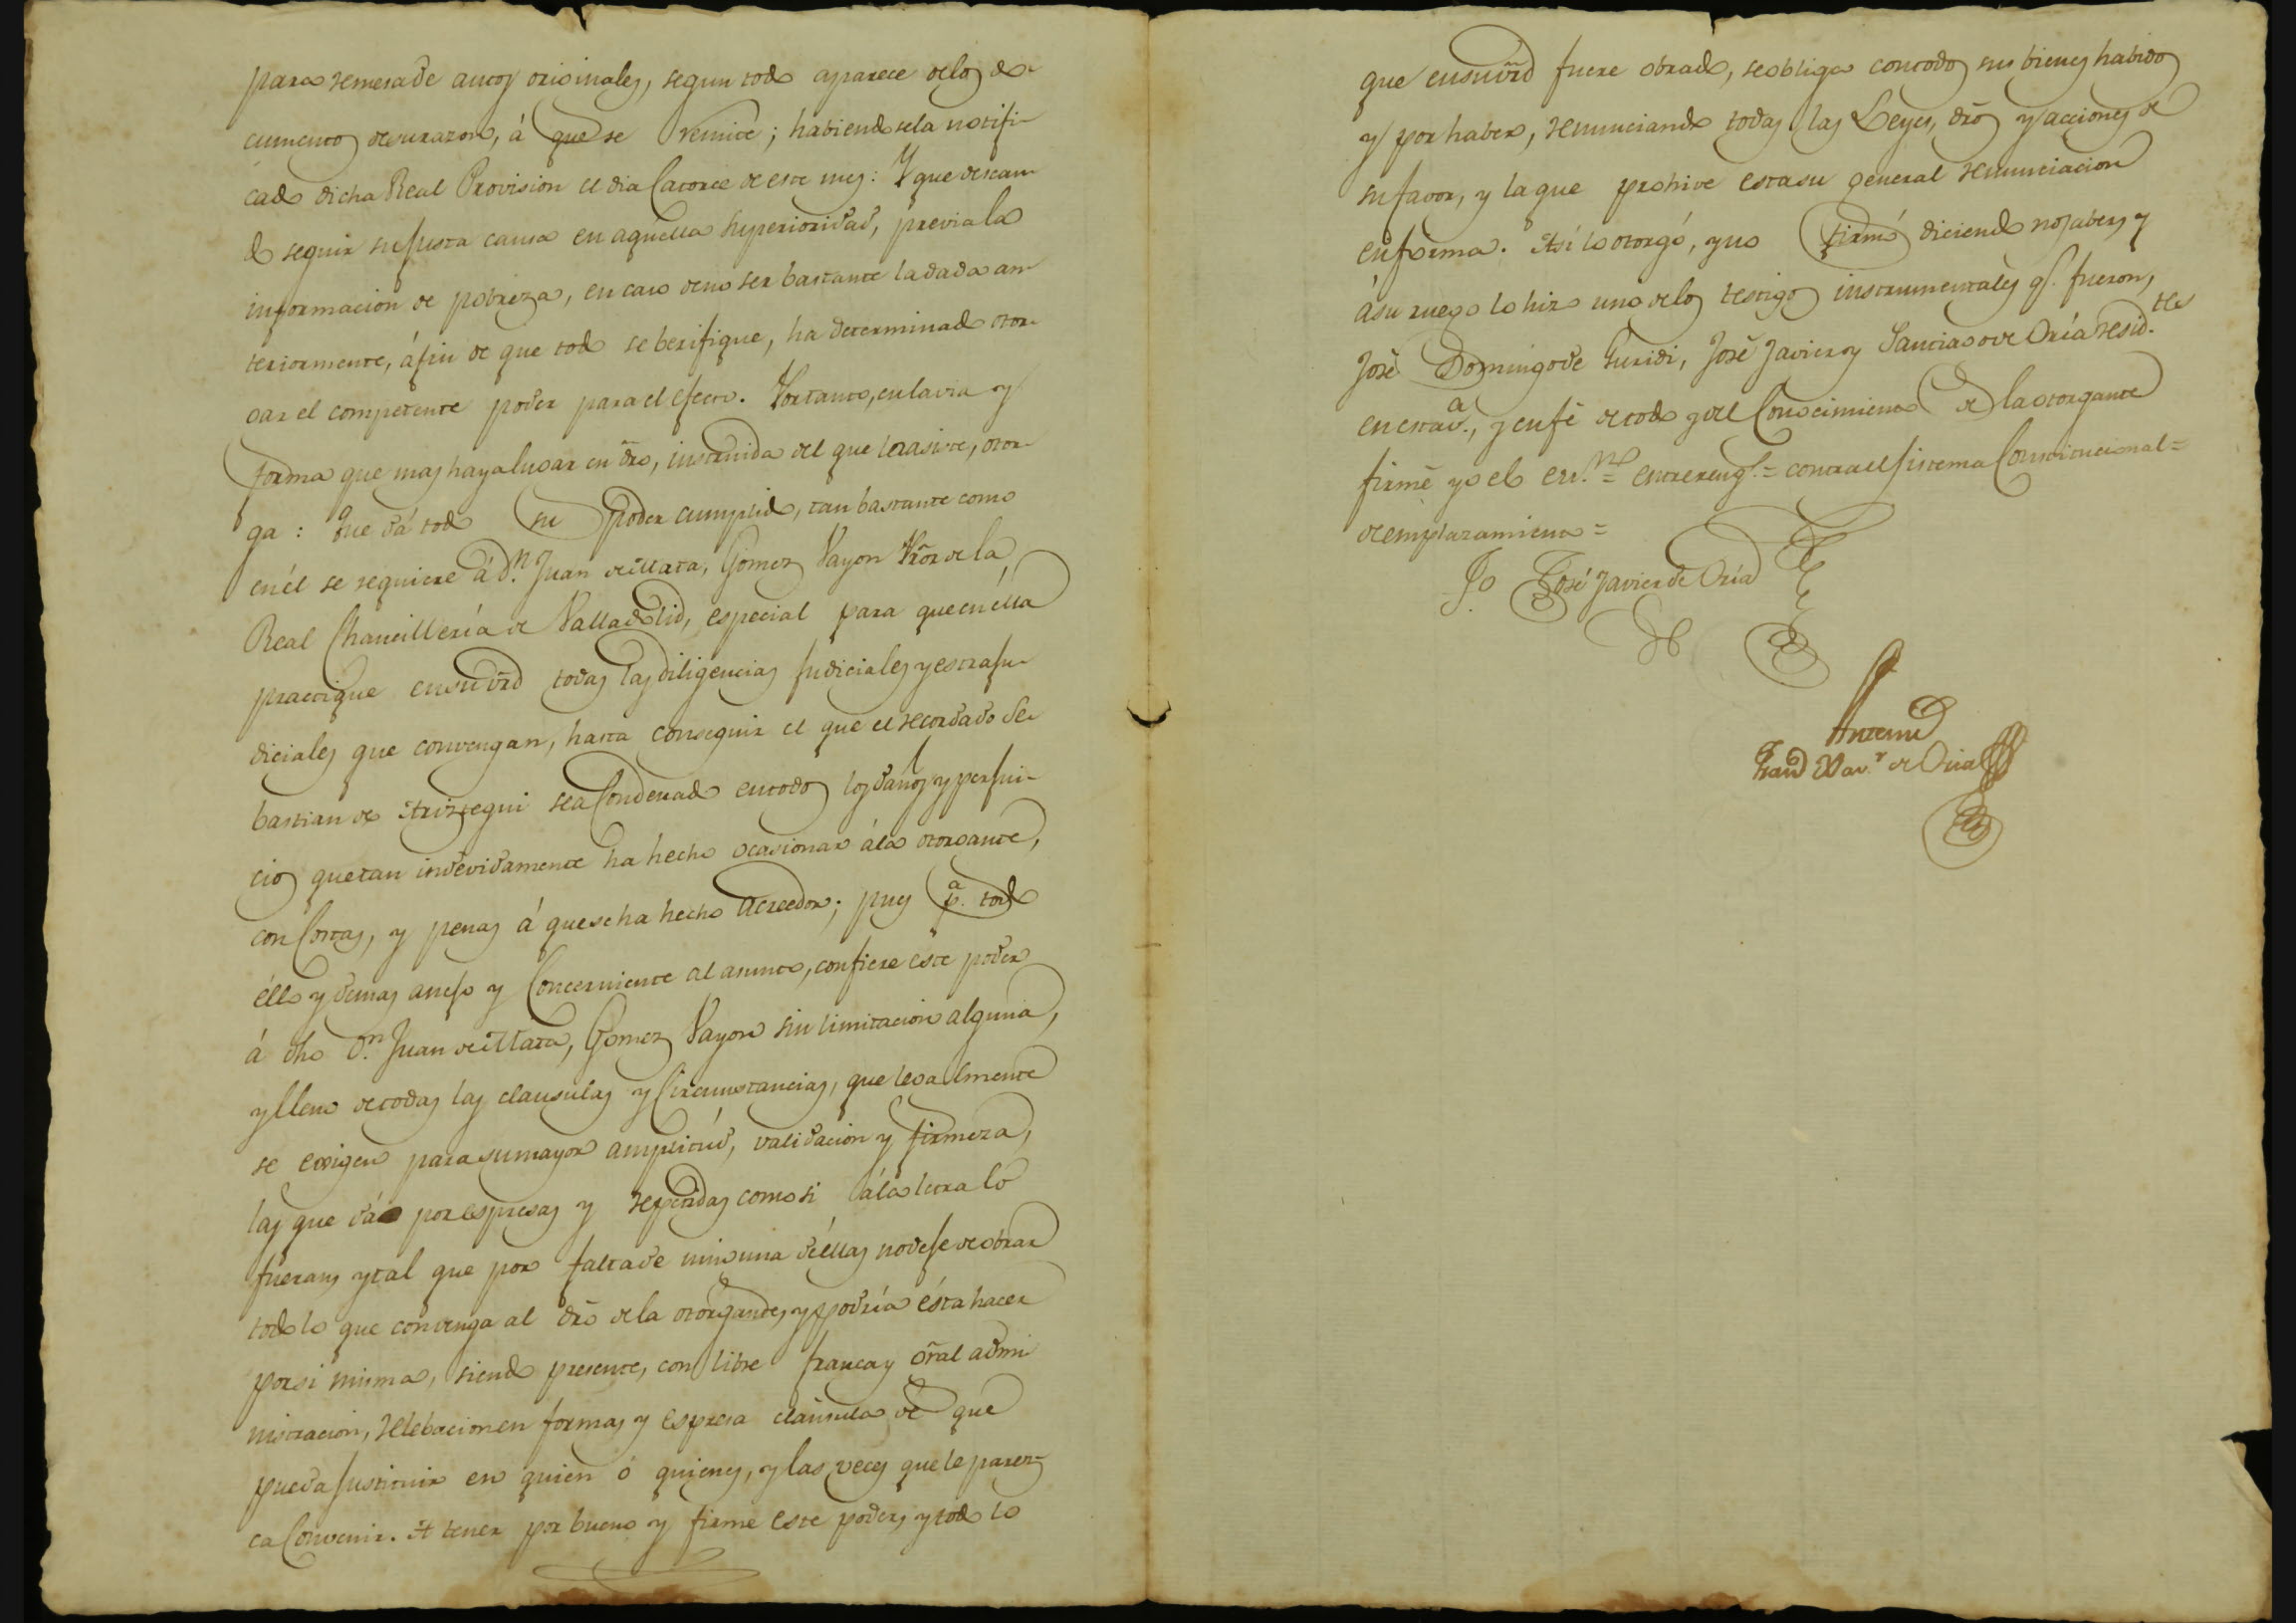 para remesa de autos originales, segun todo aparece de los do-
cumentos de su razon, á que se remite; habiendosela notifi-
cado dicha Real Provision el dia Catorce de este mes: Y que desean-
do seguir su justa causa en aquella Superioridad, previa la
informacion de pobreza, en caso de no ser bastante la dada an-
teriormente, á fin de que todo se berifique, ha determinado otor-
gar el competente poder para el efecto. Por tanto, en la via y
forma que mas haya lugar en dro, instruida del que la asiste, otor-
ga: Que dá todo su poder cumplido, tan bastante como
en él se requiere á Dn. Juan de Mata, Gomez Payon Pror de la
Real Chancillería de Valladolid, especial para que en élla
practique en su vrd todas las diligencias judiciales y estraju-
diciales que convengan, hasta conseguir el que el recordado Se-
bastian de Ariztegui sea Condenado en todos los daños y perjui-
cios que tan indevidamente ha hecho ocasionar á la otorgante,
con Costas, y penas á que se ha hecho acreedor; pues pa. todo
éllo y demas anejo y Concerniente al asunto, confiere este poder
á dho Dn. Juan de Mata, Gomez Payon sin limitacion alguna,
y lleno de todas las clausulas y Circunstancias, que legalmente
se exigen para su mayor amplitud, validacion y firmeza,
las que dá por espresas y repetidas como si á la letra lo
fueran, y tal que por falta de ninguna de éllas no deje de obrar
todo lo que convenga al dro de la otorgante, y podría ésta hacer
por si misma, siendo presente, con libre franca y gral admi
nistracion, relebacion en forma, y espresa clausula de que
pueda sustituir en quien ó quienes, y las veces que le parez-
ca Convenir. A tener por bueno y firme este poder, y todo lo
que en su vrd fuere obrado, se obliga con todos sus bienes habidos
y por haber, renunciando todas las Leyes, dros y acciones de
su favor, y la que prohive esta su general renunciacion
en forma. Así lo otorgó, y no firmó diciendo no saber, y
á su ruego lo hizo uno de los testigos instrumentales qe. fueron,
José Domingo de Guridi, José Javier y Santiago de Oría resid.tes
en esta va., y en fé de todo y del Conocimiento de la otorgante
firmé yo el esno. = entrerengs. = contra el sistema Constitucional =
de emplazamiento =
To José Javier de Oría
Antemi
Franco Xavr. de Oria